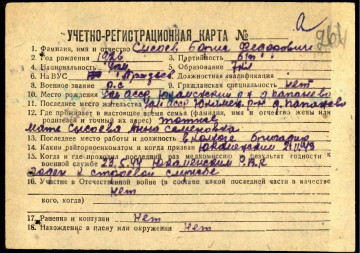 УЧЕТНО-РЕГИСТРАЦИОННАЯ КАРТА №
264
1. Фамилия, имя и отчество Сысоев Борис Федорович
2. Год рождения 1926 3. Партийность б/п
4. Национальность 5. Образование 7кл
6. На ВУС Должностная квалификация
8. Военное звание 9. Гражданская специальность нет
10. Место рождения Удм АССР Юкаменский
11. Последнее место жительства Удм АССР
12. Где проживает в настоящее время семья (фамилия, имя и отчество жены или
родителей и точный их адрес)
Мать Сысоева Анна Семеновна
13. Последнее место работы и должность бригадир
14. Каким райгорвоенкоматом и когда призван Юкаменский
15. Когда и где проходил последний раз медкомиссию и результат годности к
военной службе 23.5.44 Юкаменский
годен к строевой службе
16. Участие в Отечественной войне (в составе какой последней части в качестве
кого, когда) нет
17. Ранения и контузии нет
18. Нахождение в плену или окружении нет